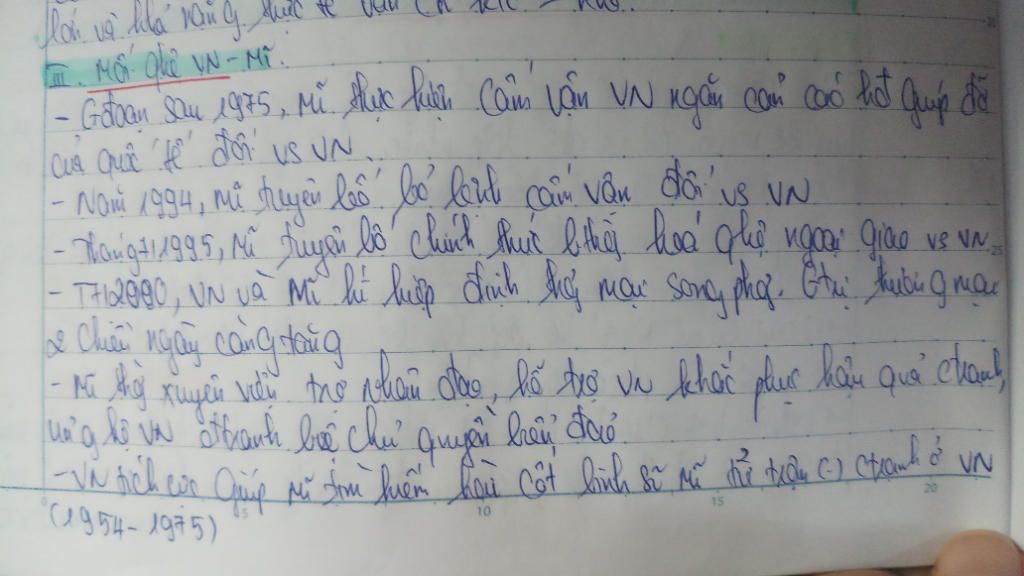 lớn và khả năng thực tế
III. Mối qhệ VN - Mĩ.
- Gđoạn sau 1975, Mĩ thực hiện cấm vận VN ngăn cản các hđ giúp đỡ
của quốc tế đối vs VN.
- Năm 1994, Mĩ tuyên bố bỏ lệnh cấm vận đối vs VN
- Tháng 7/1995, Mĩ tuyên bố chính thức bthg hoá qhệ ngoại giao vs VN 25
- T7/2000, VN và Mĩ kí hiệp định thg mại song phg. Gtrị thương mại
2 chiều ngày càng tăng
- Mĩ thg xuyên viện trợ nhân đạo, hỗ trợ VN khắc phục hậu quả ctranh,
ủng hộ VN đtranh bvệ chủ quyền biển đảo
- VN tích cực giúp Mĩ tìm kiếm hài cốt lính sĩ Mĩ tử trận (-) ctranh ở VN
0 5 10 15 20
(1954 - 1975)